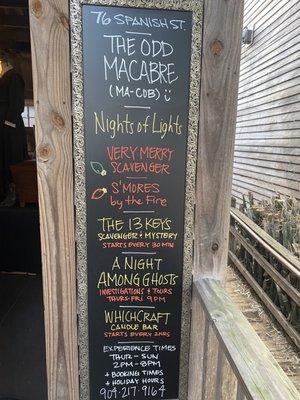 76 SPANISH ST.
THE ODD
MACABRE
(MA-COB) :)
Nights of Lights
VERY MERRY
SCAVENGER
S'MORES
by the FIRE
THE 13 KEYS
SCAVENGER & MYSTERY
STARTS EVERY 30 MIN
A NIGHT
AMONG GHOSTS
INVESTIGATIONS & TOURS
THURS-FRI 9PM
WHICHCRAFT
CANDLE BAR
STARTS EVERY 2HRS
EXPERIENCE TIMES
THUR - SUN
2PM-8PM
+ BOOKING TIMES
+ HOLIDAY HOURS
904·217·9164